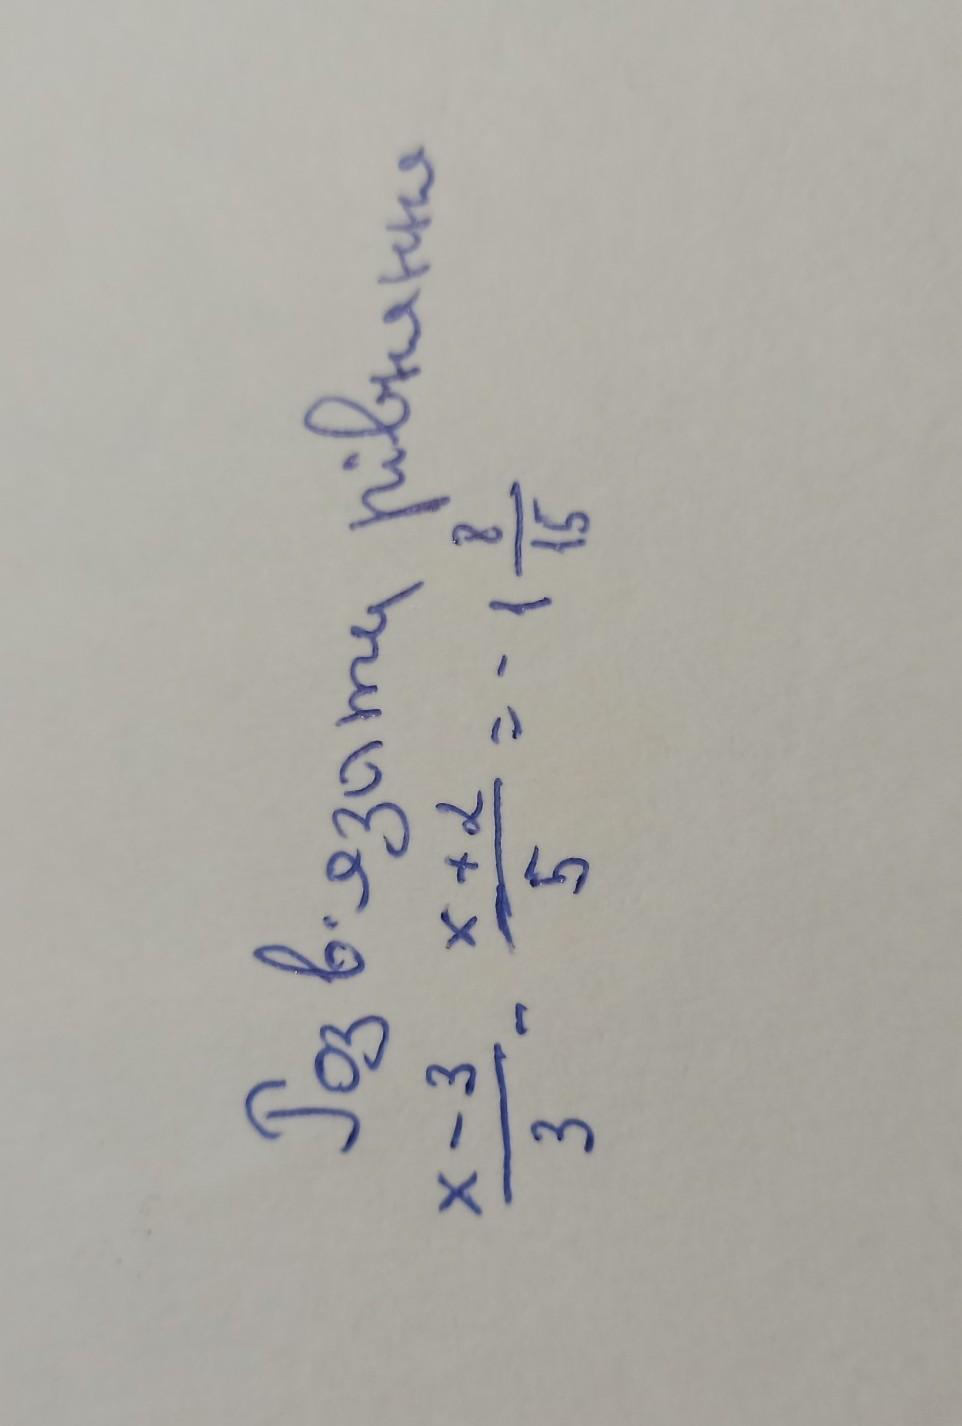 Розв'язати рівняння
x-3/3 - x+2/5 = -1 8/15